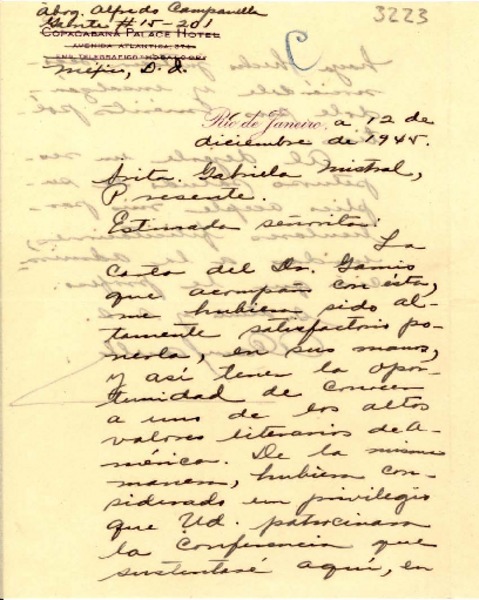 Abog. Alfredo Campanella
#15-201
3223
C
COPACABANA PALACE HOTEL
AVENIDA ATLANTICA, 374
México, D. F.
Rio de Janeiro, a 12 de
diciembre de 1945.
Srita. Gabriela Mistral,
Presente.
Estimada señorita:
La
carta del Dr. Gamio
que acompaño con ésta,
me hubiera sido al-
tamente satisfactorio po-
nerla, en sus manos,
y así tener la opor-
tunidad de conocer
a uno de los altos
valores literarios de A-
mérica. De la misma
manera, hubiera con-
siderado un privilegio
que Ud. patrocinara
la conferencia que
sustentaré aquí, en